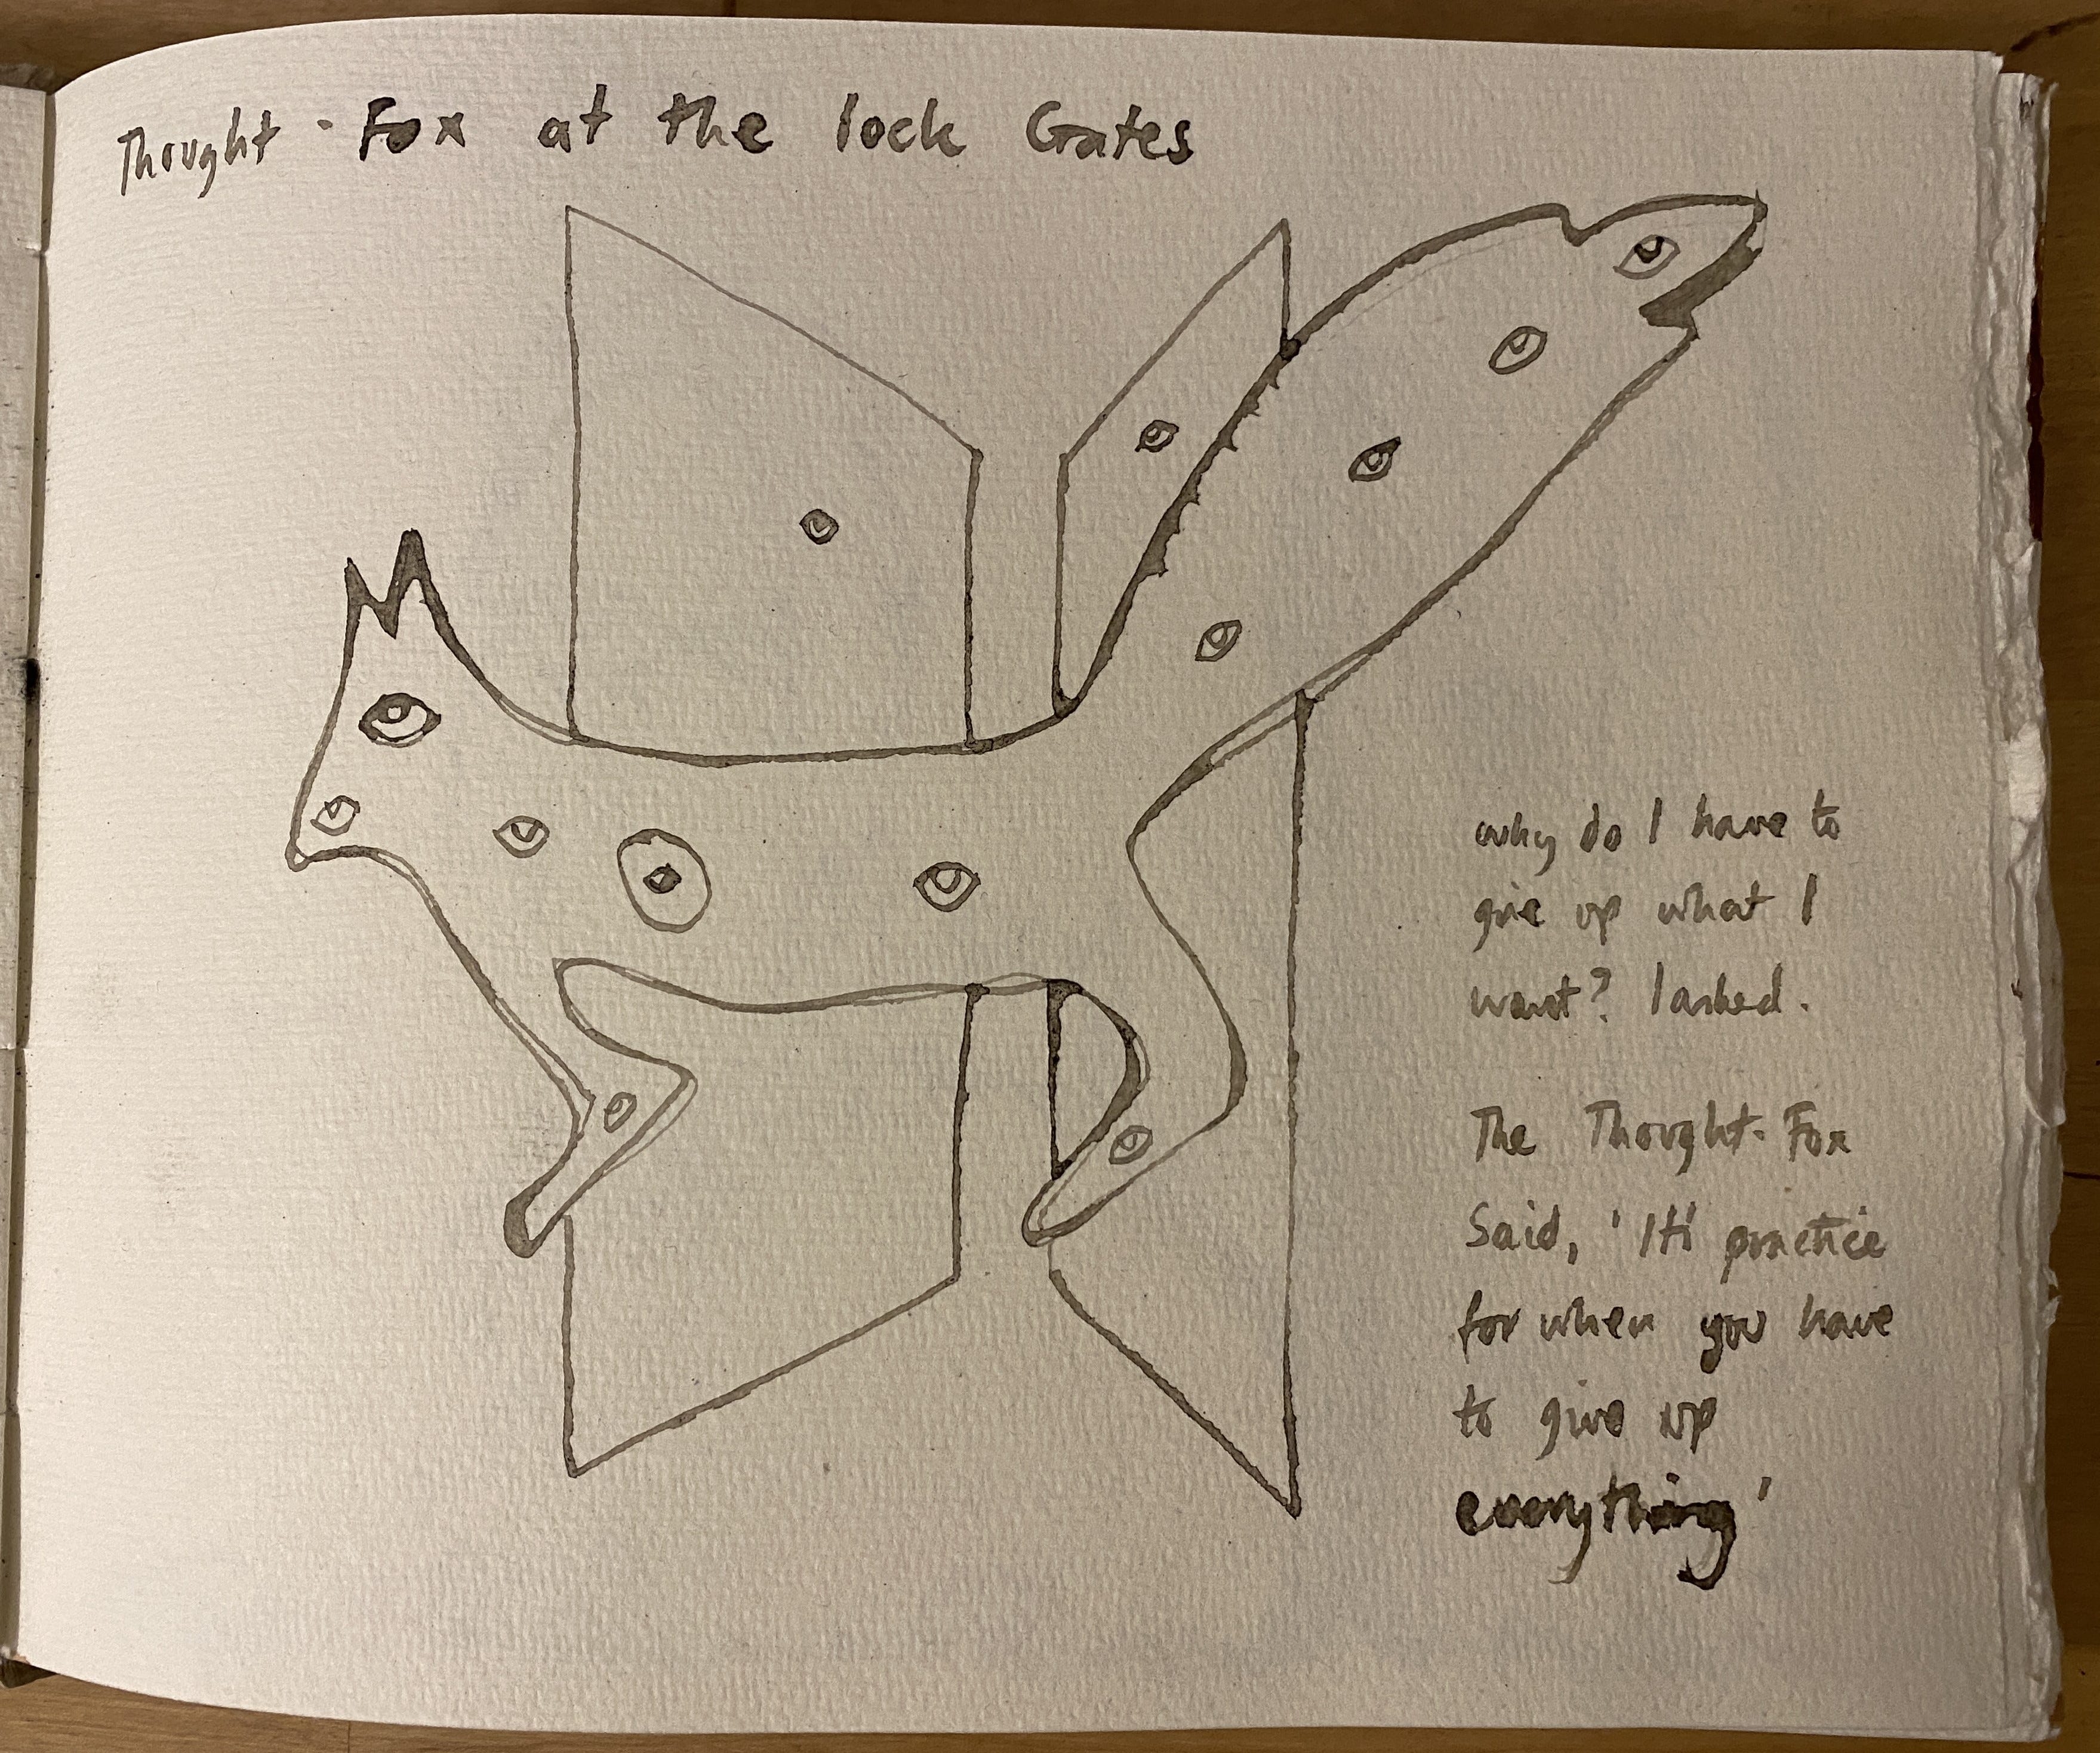 Thought-Fox at the lock Gates
why do I have to
give up what I
want? I asked.
The Thought-Fox
Said, 'It's practice
for when you have
to give up
everything'